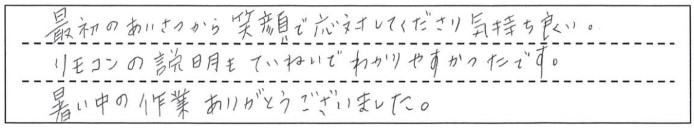 最初のあいさつから笑顔で応対してくださり気持ち良い。
リモコンの説明もていねいでわかりやすかったです。
暑い中の作業ありがとうございました。